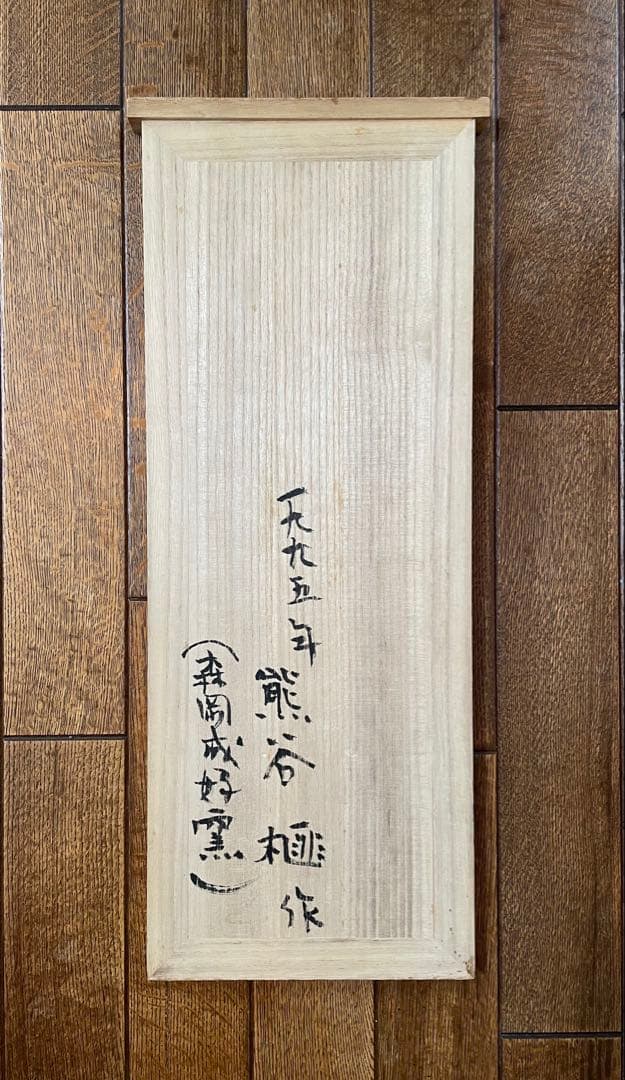 一九九五年
熊谷 榧 作
(森岡成好窯)